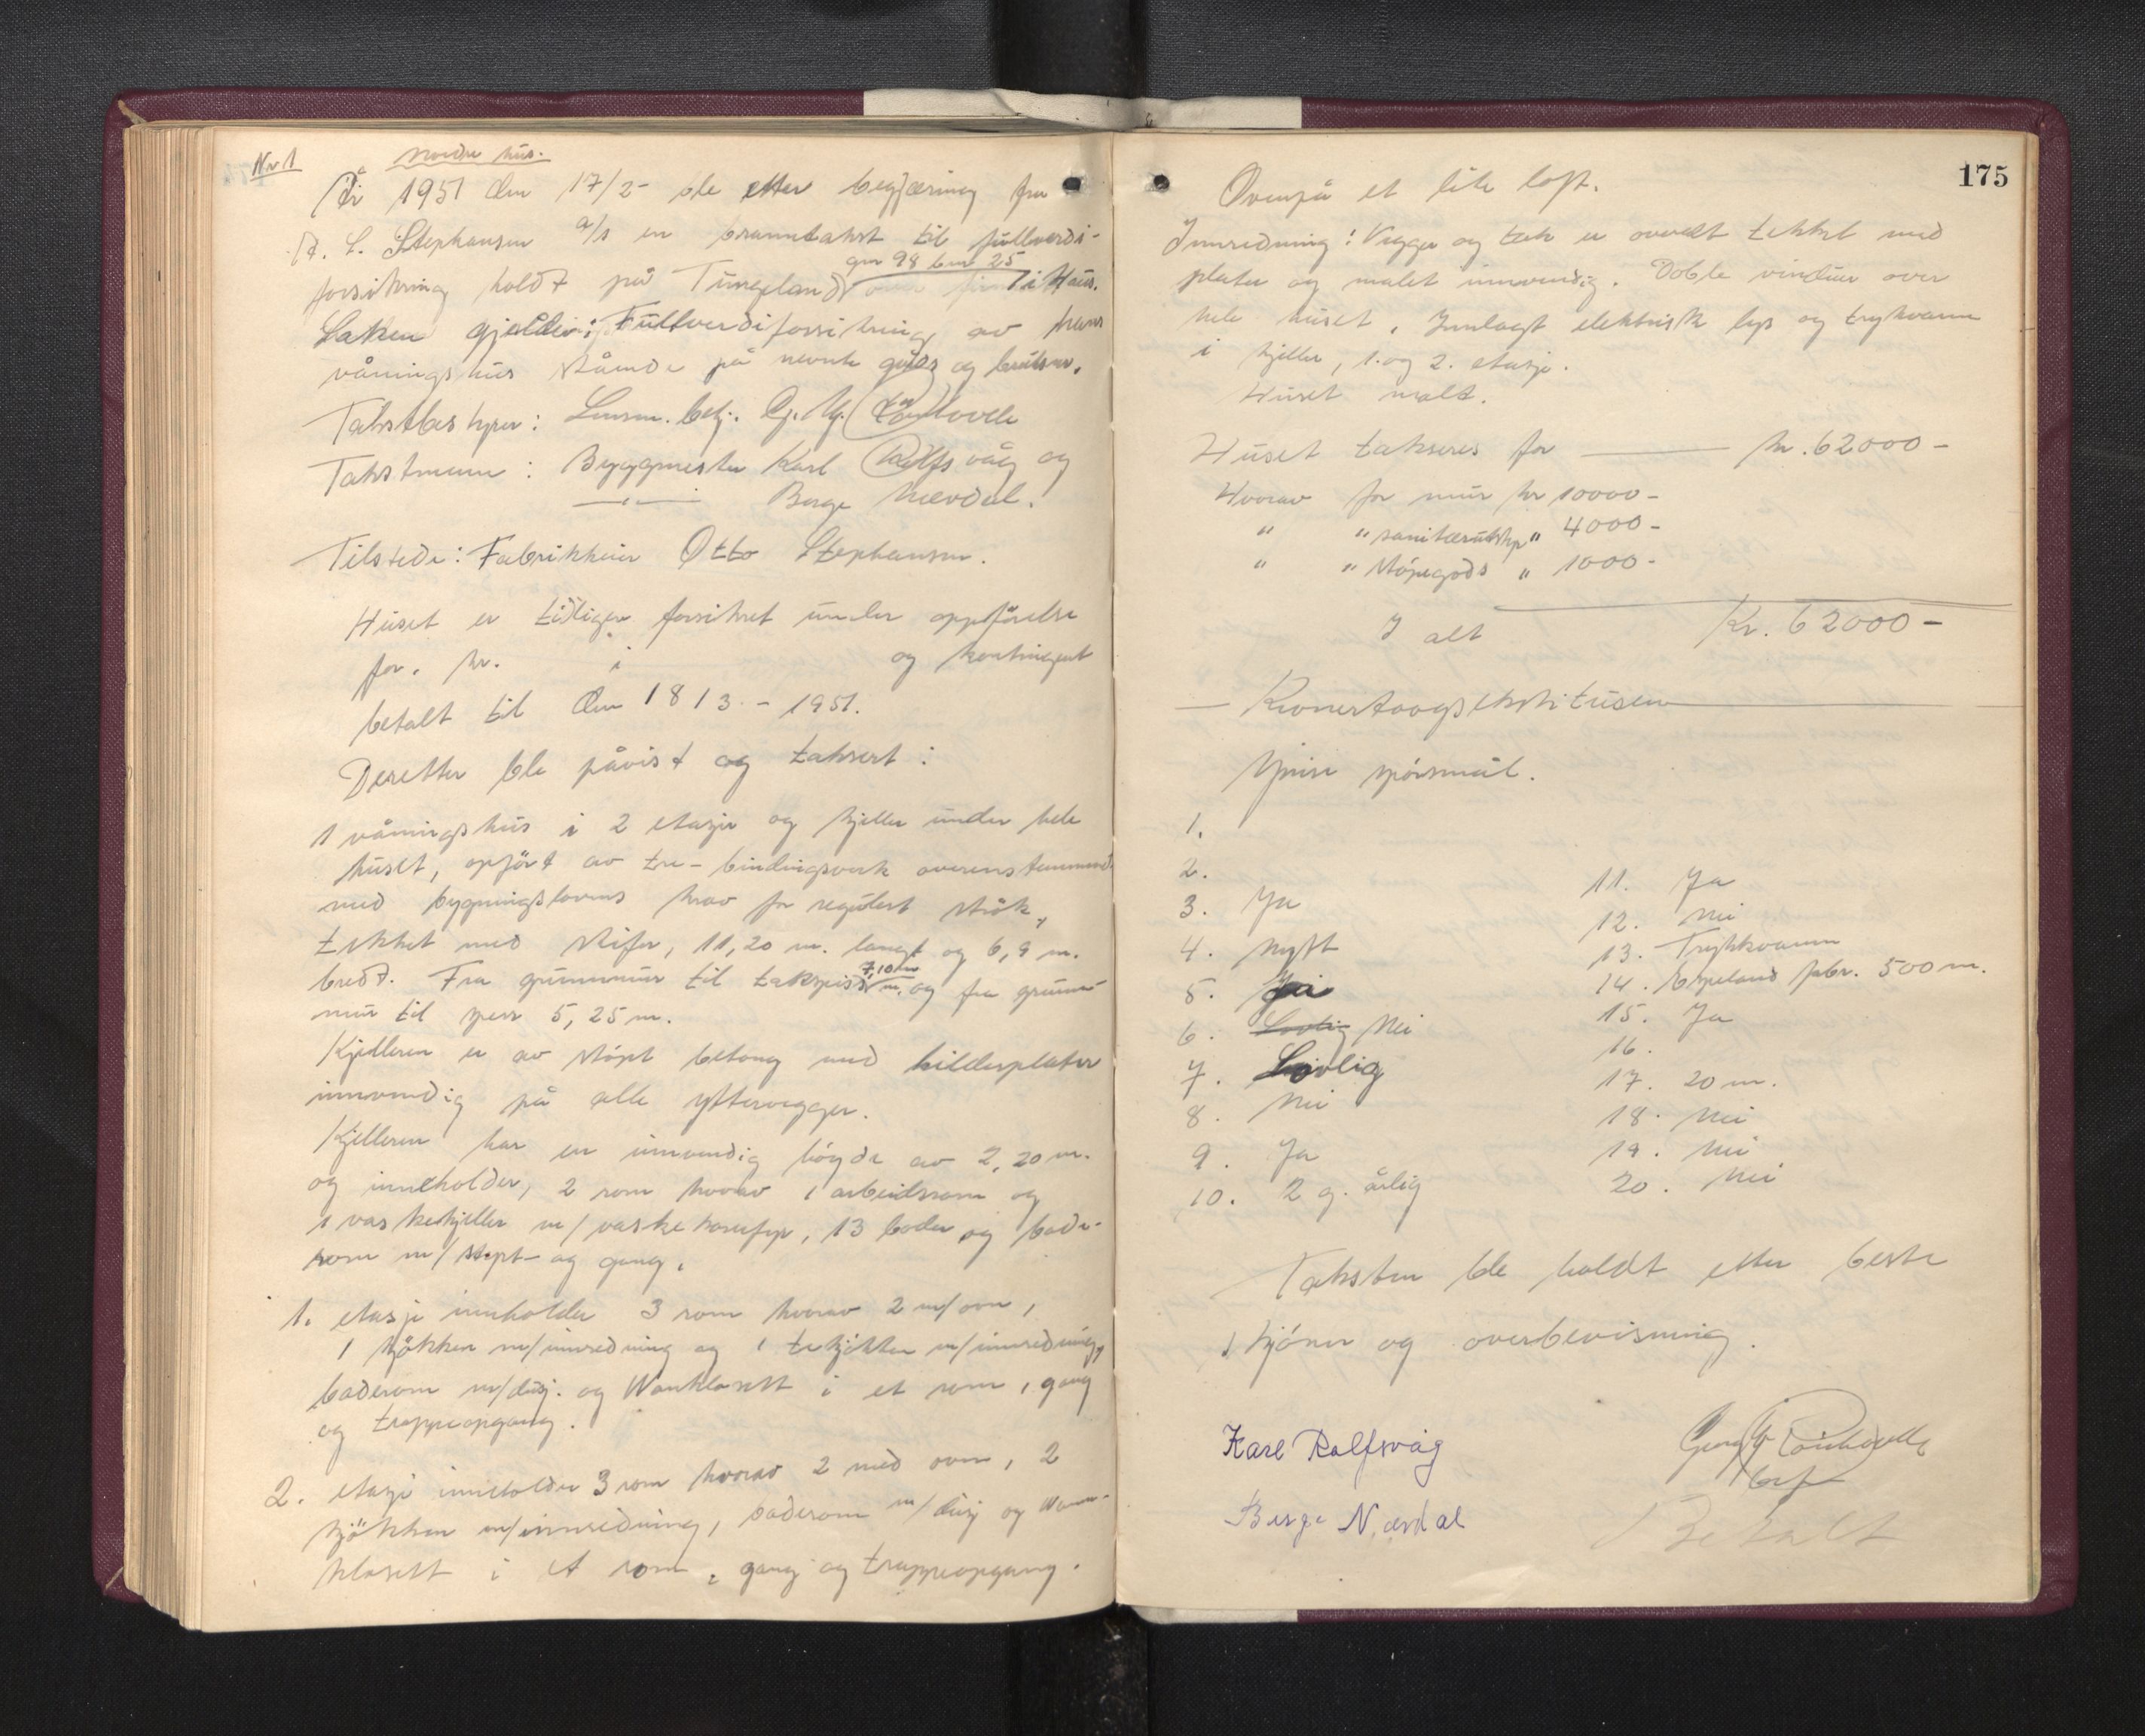 Nr 1 nordre hus.
År 1951 den 17/2- ble etter begjæring fra
O. L. Stephansen a/s en branntakst til fullverdi-
forsikring holdt på Tungeland gnr 98 bnr 25 i Haus.
Saken gjelder: Fullverdiforsikring av hans
våningshus stående på nevnte gårds og bruksnr.
Takstbestyrer: Lensm. betj. G. M.
Takstmenn: Byggmester Karl Rolfsvåg og
—"— Berge Nævdal.
Tilstede: Fabrikkeier Otto Stephansen.
Huset er tidligere forsikret under oppförelse
for. kr. i og kontingent
betalt til den 18/3 - 1951.
Deretter ble påvist og taksert:
1 våningshus i 2 etasjer og kjeller under hele
huset, opfört av tre-bindingsverk overenstemmend
med bygningslovens krav for regulert strök,
tekket med skifer, 11,20 m. langt og 6,9 m.
bredt. Fra grunnmur til takspiss 7,10 m. og fra grunn-
mur til sperr 5,25 m.
Kjelleren er av støpt betong med kildesplater
innvendig på alle yttervegger.
Kjelleren har en innvendig höyde av 2,20 m.
og inneholder, 2 rom hvorav 1 arbeidsrom og
1 vaskekjeller m/ vaskekomfyr, 13 boder og bade-
rom m/ støpt og gang.
1. etasje inneholder 3 rom hvorav 2 m/ ovn,
1 kjökken m/ innredning og 1 tekjökken m/ innredning,
baderom m/ dusj. og Wannklosett i et rom, gang
og trappeopgang.
2. etasje inneholder 3 rom hvorav 2 med ovn, 2
kjökken m/ innredning, baderom m/ dusj og Wann-
klosett i et rom, gang og trappeopgang.
175
Ovenpå et lite loft.
Innredning: Vegger og tak er overalt tekket med
plater og malet innvendig. Doble vinduer over
hele huset. Innlagt elektrisk lys og trykvann
i kjeller, 1. og 2. etasje.
Huset malt.
Huset takseres for —— kr. 62000-
Hvorav for mur kr 10000-
" " sanitærutstyr " 4000-
" " støpegods " 1000-
I alt Kr. 62000-
Spesi spörsmål.
1.
2.
3. Ja
4. Nytt
5. Ja
6. Lovlig Nei
7. Lovlig
8. Nei
9. Ja
10. 2 g. årlig
11. Ja
12. Nei
13. Trykkvann
14. Espeland fabr. 500 m.
15. Ja
16.
17. 20 m.
18. Nei
19. Nei
20. Nei
Taksten ble holdt etter beste
skjönn og overbevisning.
Karl Rolfsvåg
Berge Nævdal
Betalt